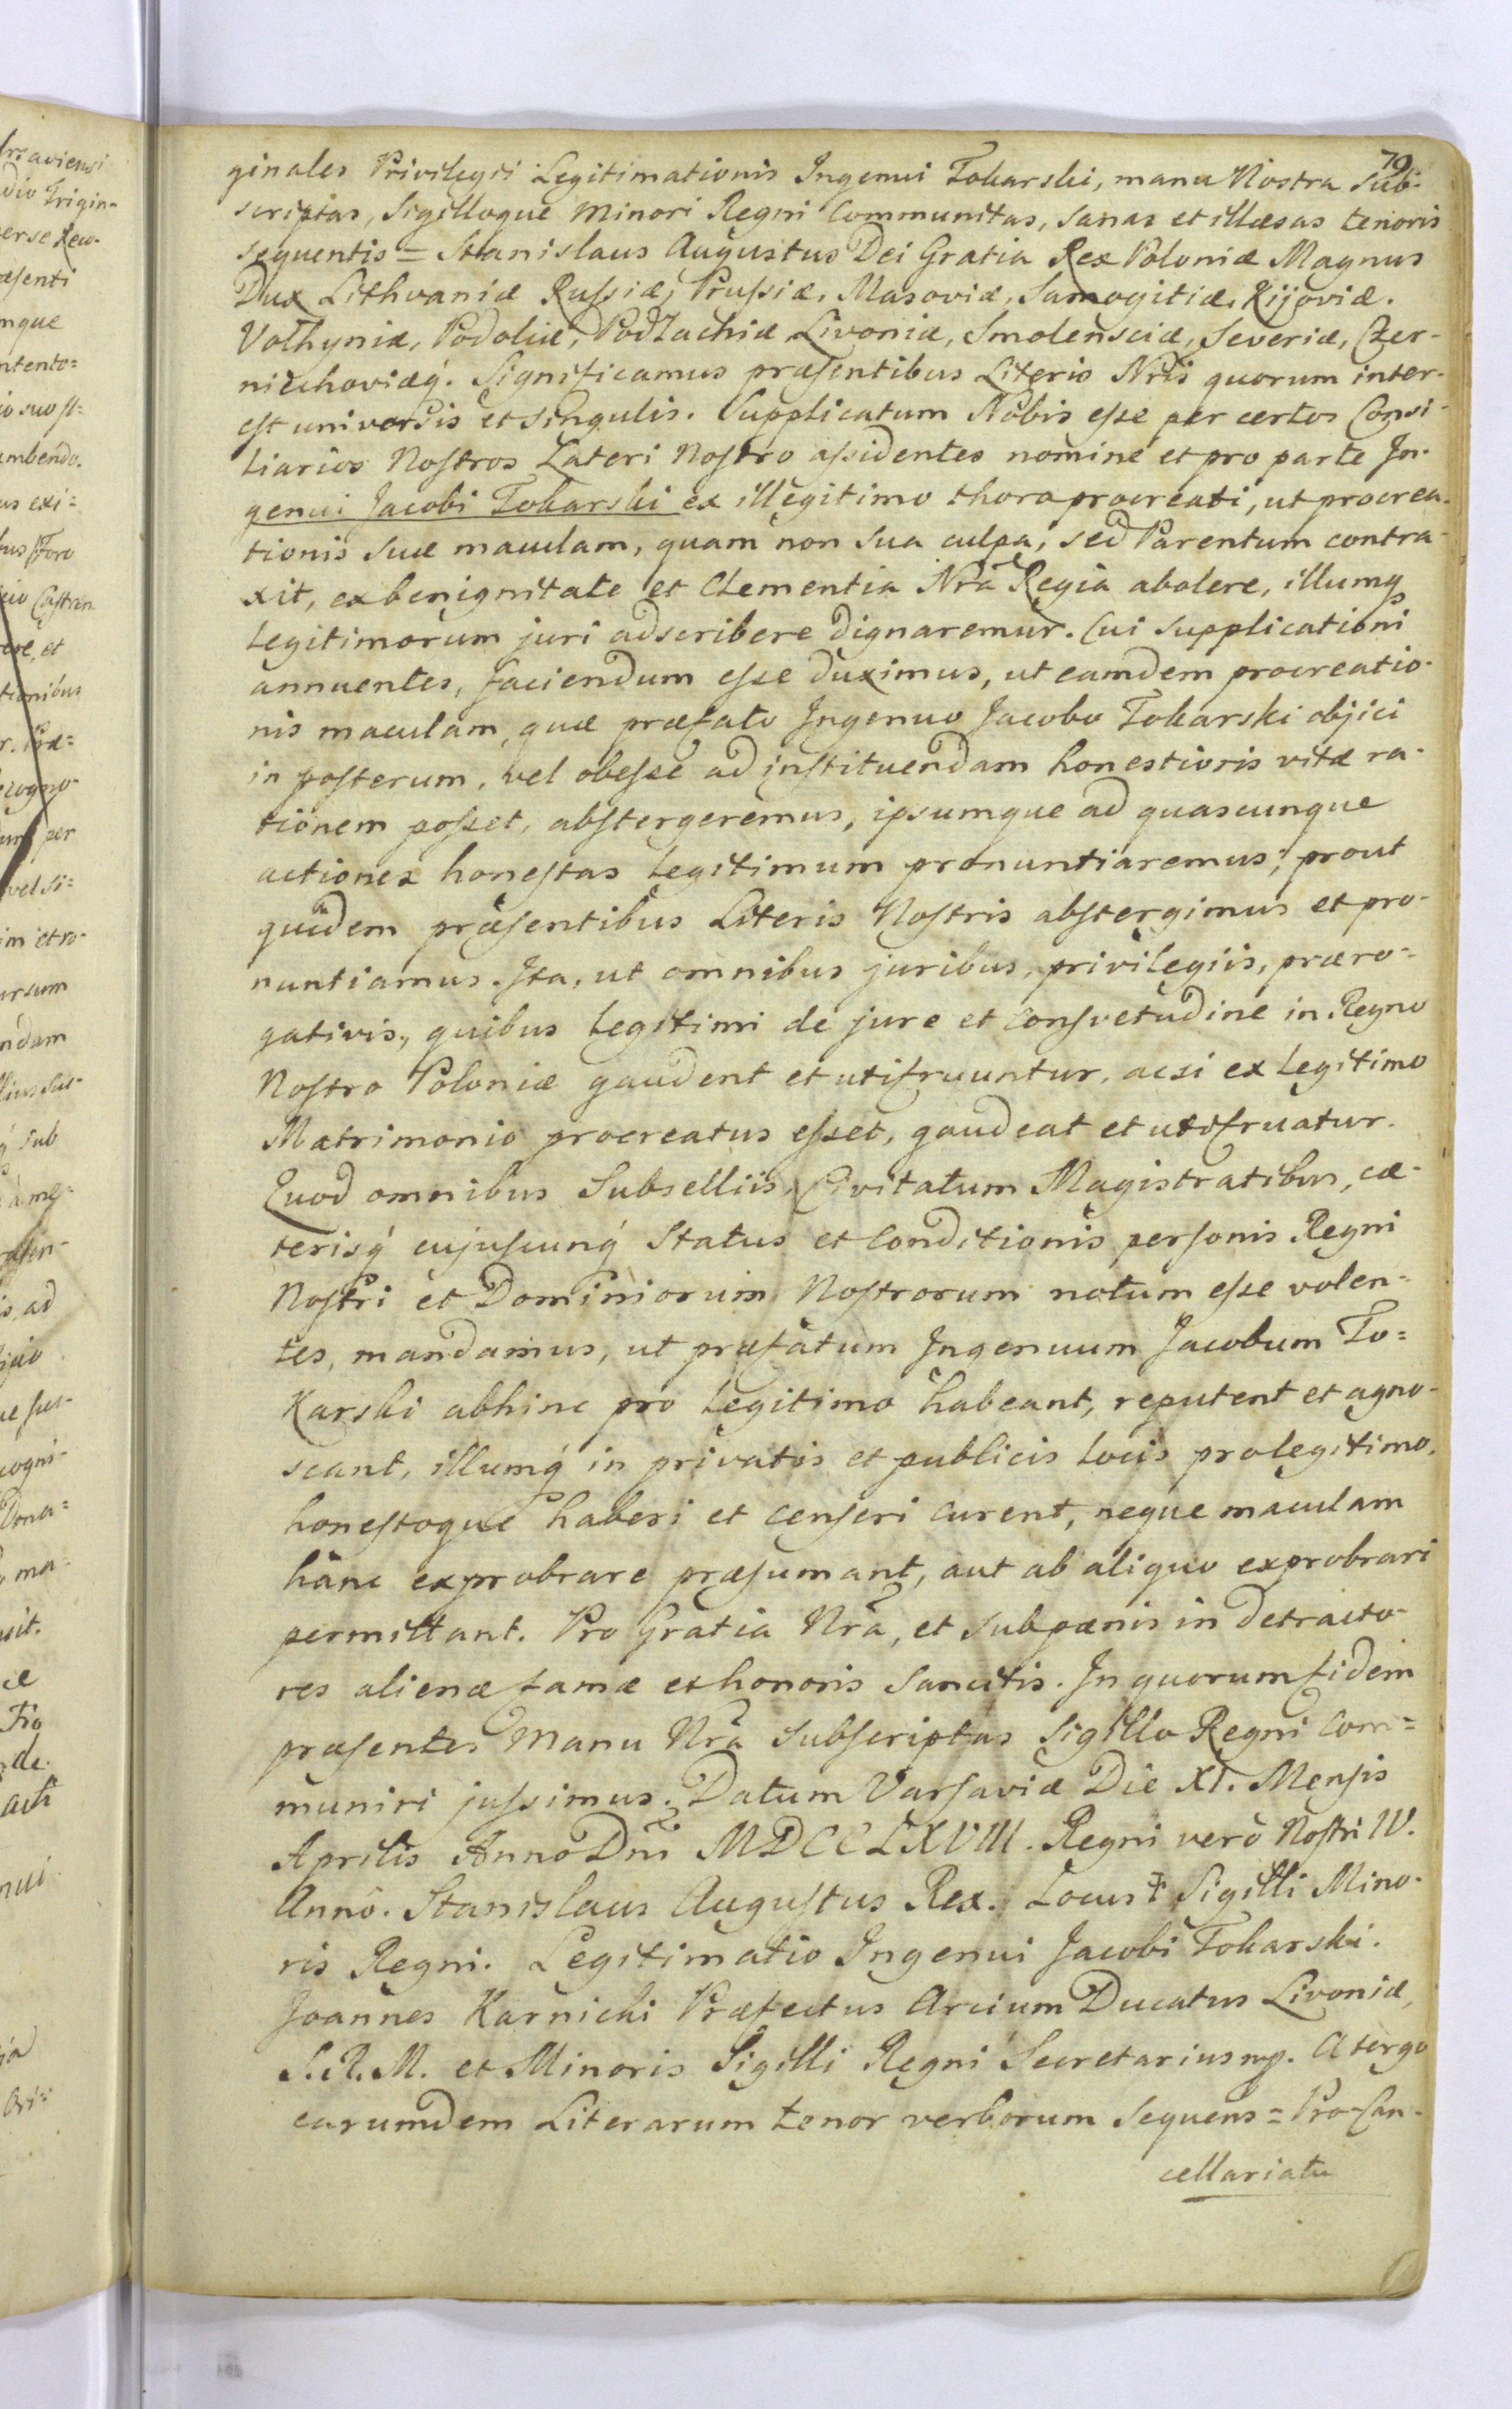 79
ginales Privilegii Legitimationis Ingenui Tokarski, manu Nostra Sub-
scriptas, Sigilloque Minori Regni Communitas, sanas et illæsas tenoris
sequentis = Stanislaus Augustus Dei Gratia Rex Poloniæ Magnus
Dux Lithvaniæ Russiæ, Prussiæ, Masoviæ, Samogitiæ, Kijoviæ.
Volhyniæ, Podoliæ, Podlachiæ Livoniæ, Smolensciæ, Severiæ, Czer-
niechoviæq́. Significamus præsentibus Literis Nrı̃s quorum inter-
est universis et singulis. Supplicatum Nobis esse per certos Consi-
liarios Nostros Lateri Nostro assidentes nomine et pro parte In-
genui Jacobi Tokarski ex illegitimo thoro procreati, ut procrea-
tionis suæ maculam, quam non sua culpa, sed Parentum contra-
xit, ex benignitate et Clementia Nrã Regia abolere, illumq
Legitimorum juri adscribere dignaremur. Cui supplicationi
annuentes, faciendum esse duximus, ut eamdem procreatio-
nis maculam, quæ præfato Ingenuo Jacobo Tokarski objici
in posterum, vel obesse ad instituendam honestioris vitæ ra-
tionem posset, abstergeremus, ipsumque ad quascunque
actiones honestas legitimum pronuntiaremus; prout
quidem præsentibus Literis Nostris abstergimus et pro-
nuntiamus. Ita, ut omnibus juribus, privilegiis, præro-
gativis, quibus legitimi de jure et consvetudine in Regno
Nostro Poloniæ gaudent et utifruuntur, acsi ex legitimo
Matrimonio procreatus esset, gaudeat et utifruatur.
Quod omnibus Subselliis, Civitatum Magistratibus, cæ-
terisq́ cujuscunq́ Status et Conditionis personis Regni
Nostri et Dominiorum Nostrorum notum esse volen-
tes, mandamus, ut præfatum Ingenuum Jacobum To=
Karski abhinc pro legitimo habeant, reputent et agno-
scant, illumq́ in privatis et publicis locis pro legitimo,
honestoque haberi et censeri curent, neque maculam
hanc exprobrare præsumant, aut ab aliquo exprobrari
permittant. Pro Gratia Nrã, et sub pœnis in detracto-
res alienæ famæ et honoris sancitis. In quorum fidem
præsentes Manu Nrã subscriptas Sigillo Regni Com=
muniri jussimus. Datum Varsaviæ Die XI. Mensis
Aprilis Anno Dnı̃ MDCCLXVIII. Regni verò Nostri IV.
Annô. Stanislaus Augustus Rex. Locus ✝ Sigilli Mino-
ris Regni. Legitimatio Ingenui Jacobi Tokarski.
Joannes Karnicki Præfectus Arcium Ducatus Livoniæ,
S. R. M. et Minoris Sigilli Regni Secretarius mp. A tergo
earumdem Literarum tenor verborum sequens = Pro-Can-
cellariatu